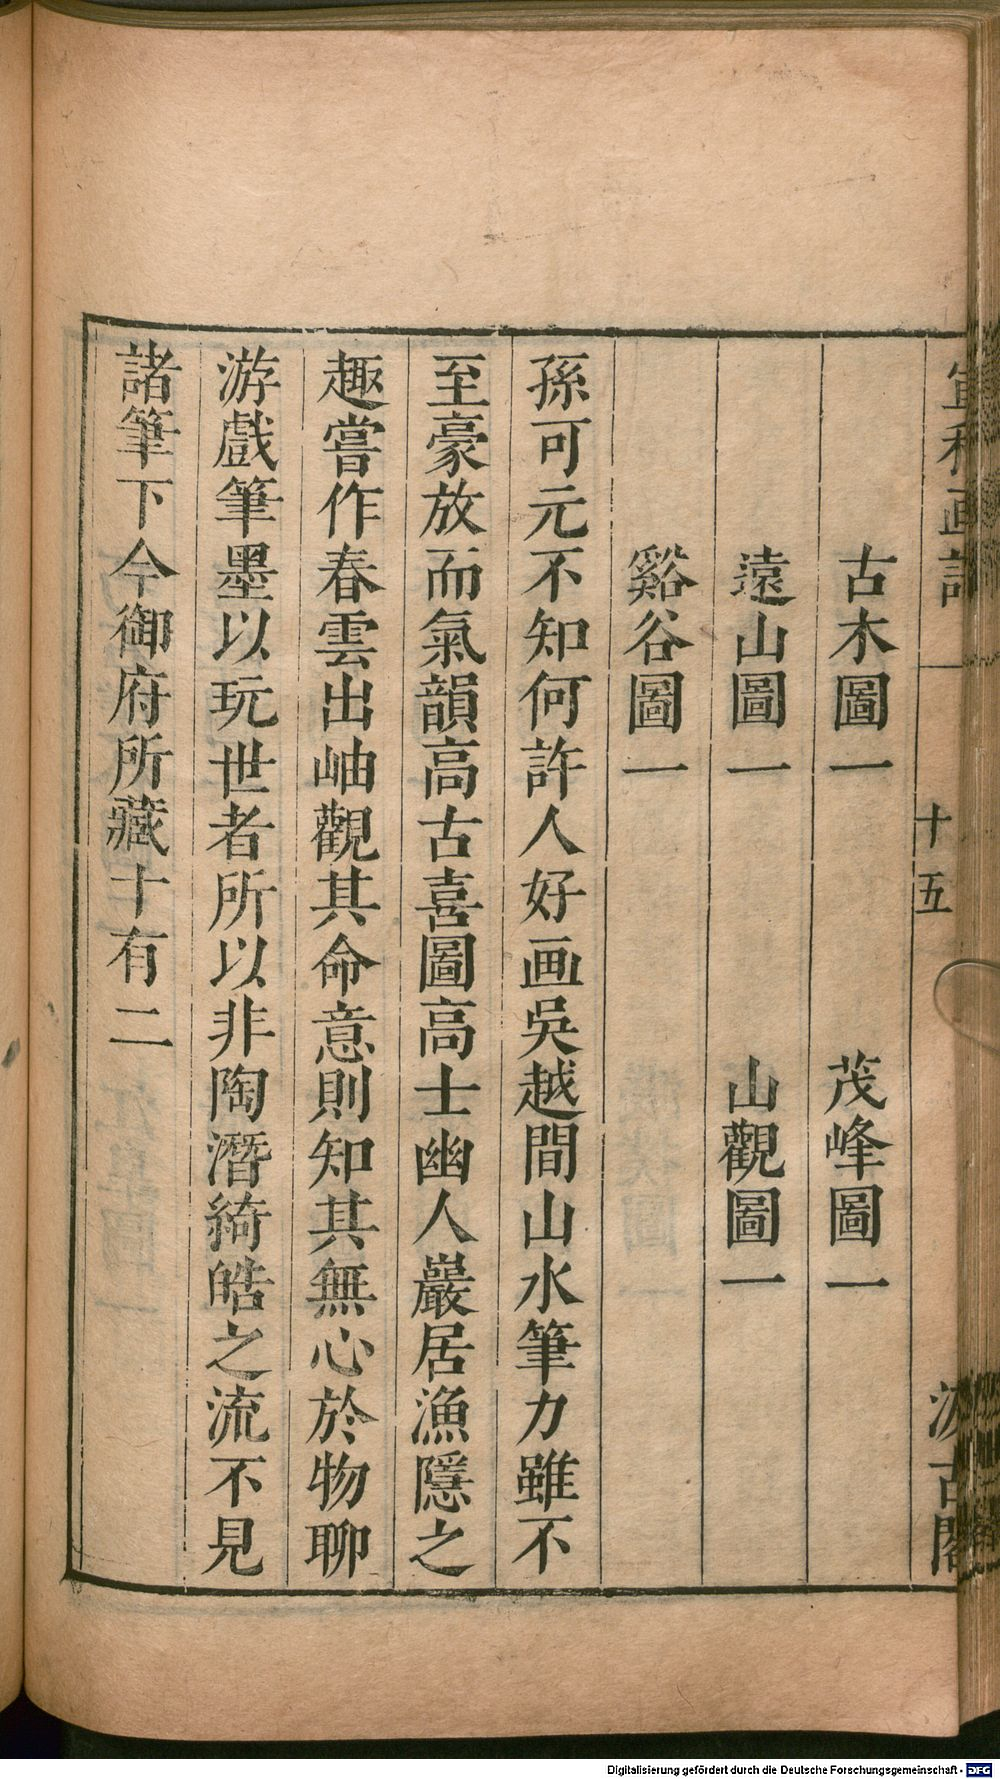 宣和画譜
十五
汲古閣
古木圖一 茂峰圖一
遠山圖一 山觀圖一
谿谷圖一
孫可元不知何許人好画吳越間山水筆力雖不
至豪放而氣韻高古喜圖高士幽人巖居漁隱之
趣嘗作春雲出岫觀其命意則知其無心於物聊
游戲筆墨以玩世者所以非陶潛綺皓之流不見
諸筆下今御府所藏十有二
Digitalisierung gefördert durch die Deutsche Forschungsgemeinschaft - DFG